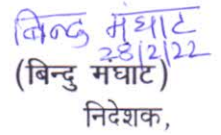 बिन्दु मंघाट
28/2/22
(बिन्दु मंघाट)
निदेशक,